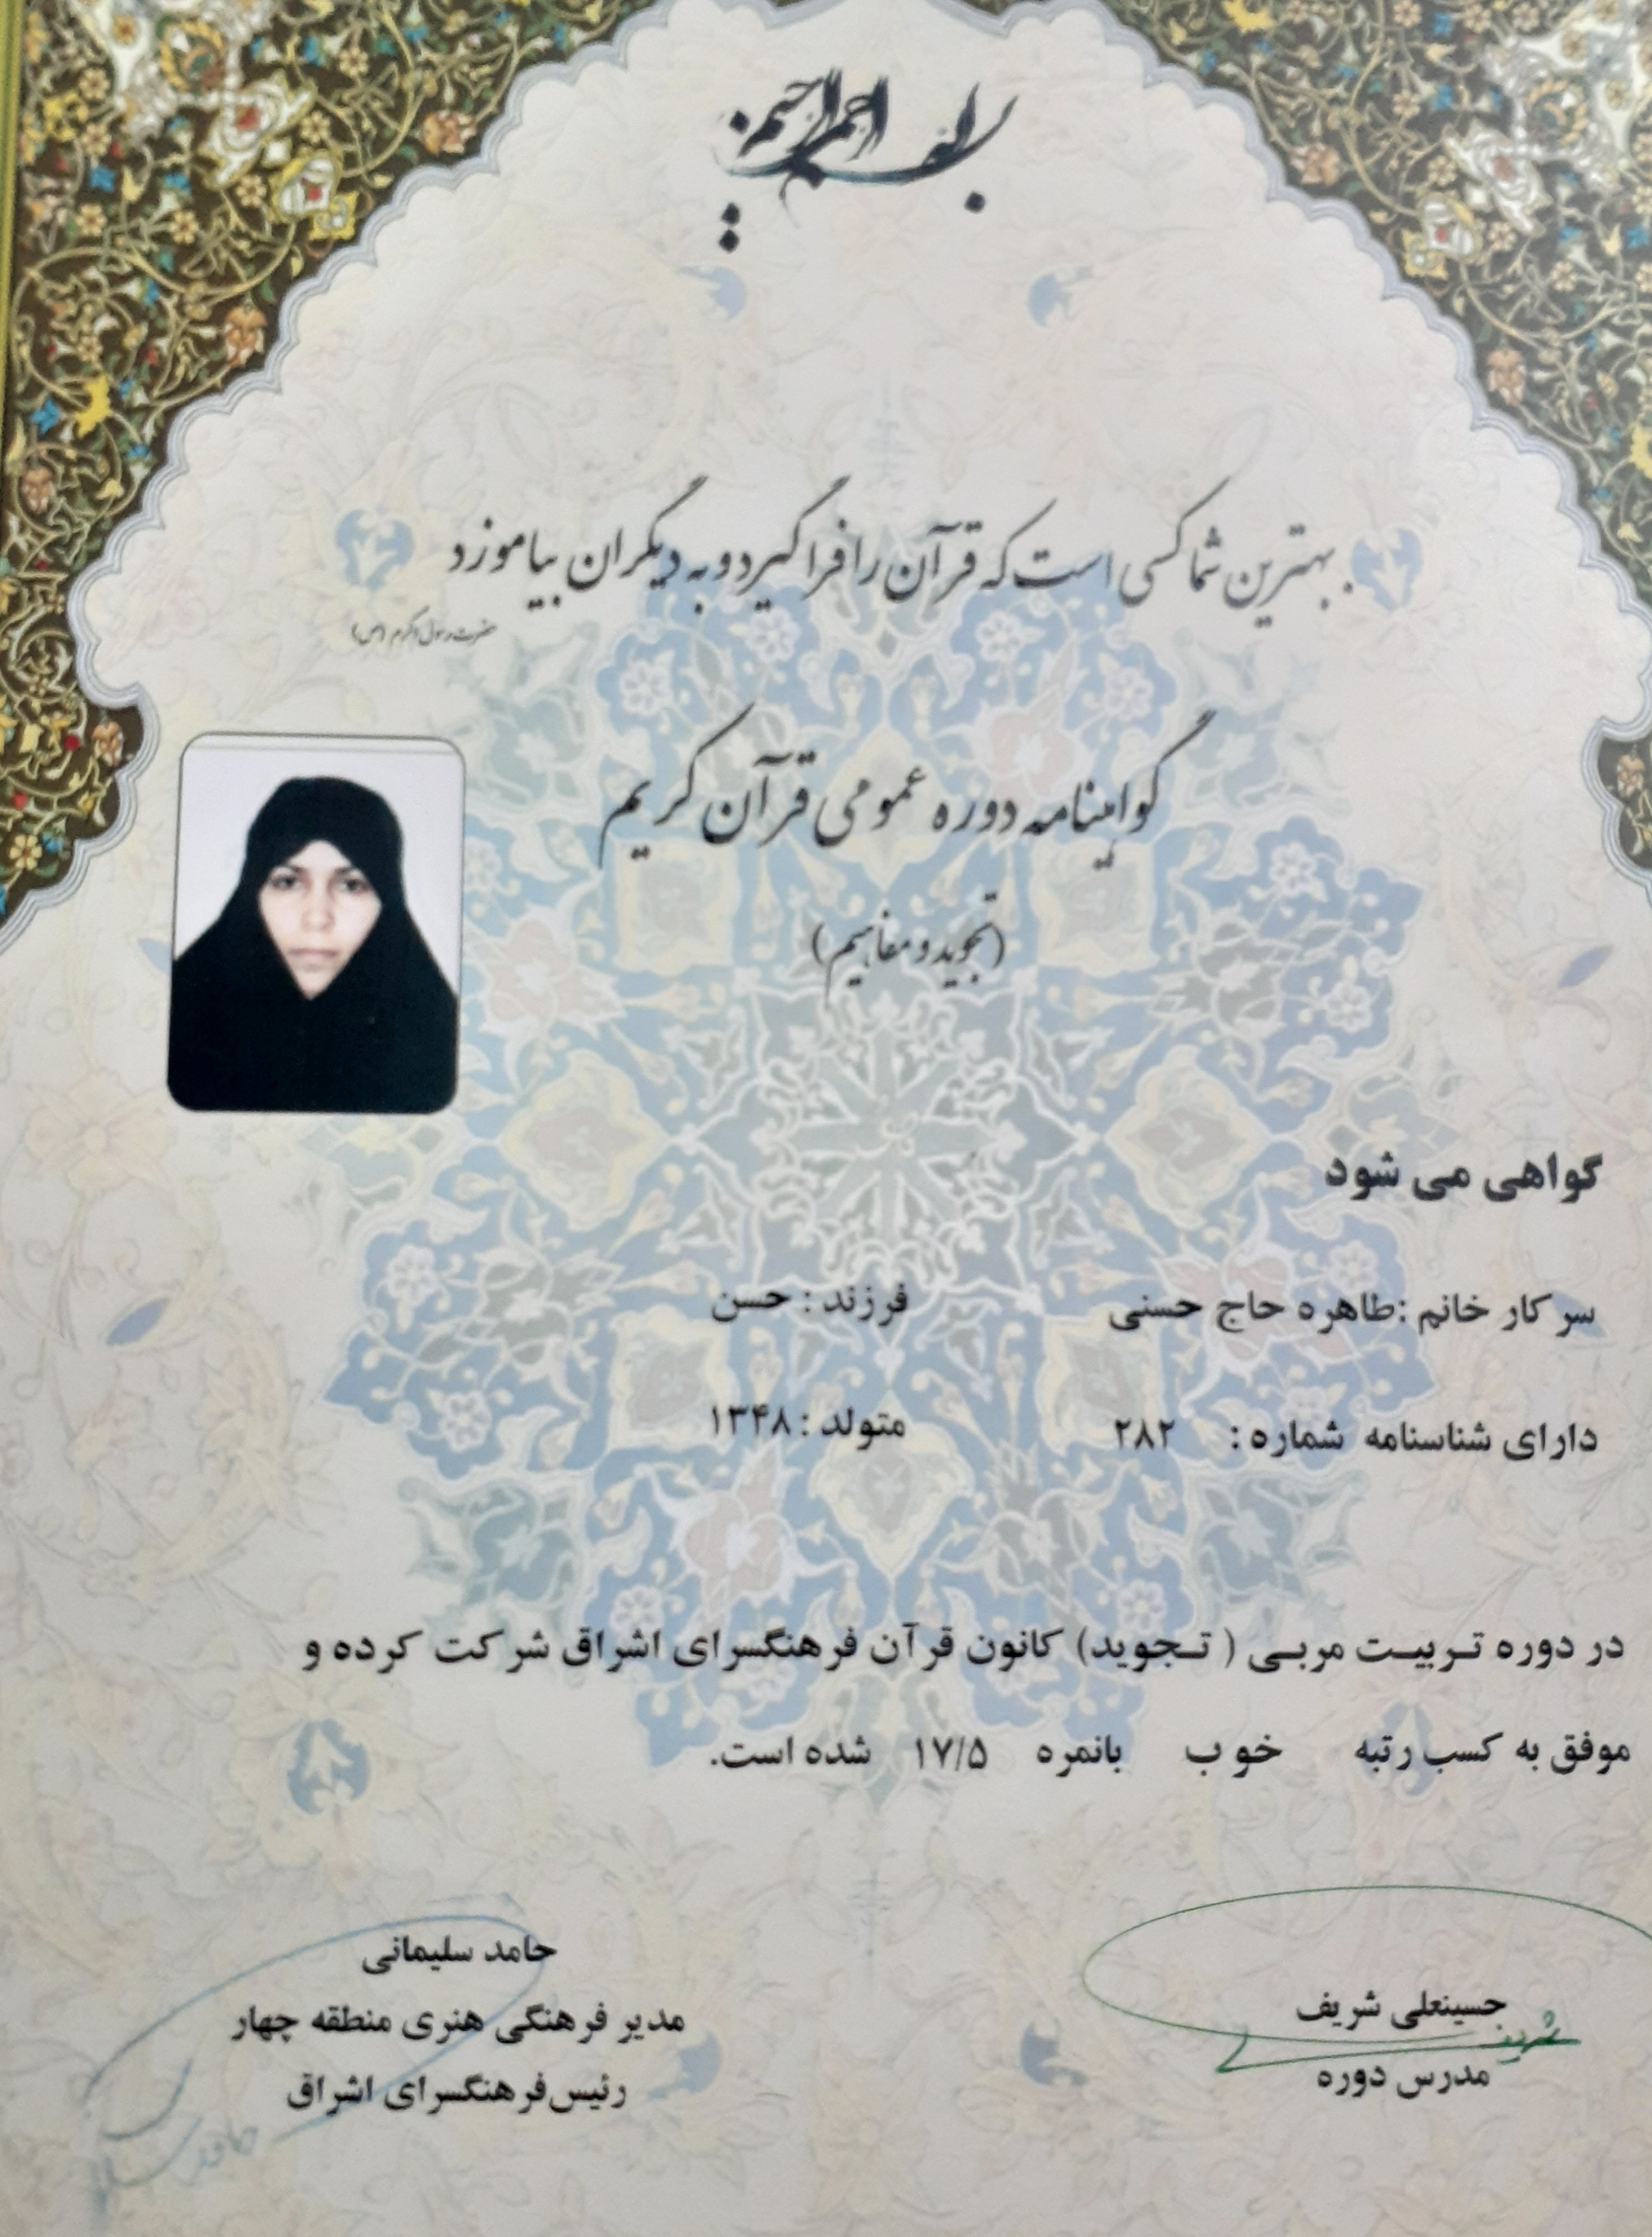 بسم الله الرحمن الرحیم
بهترین شما کسی است که قرآن را فرا گیرد و به دیگران بیاموزد
حضرت رسول اکرم (ص)
گواهینامه دوره عمومی قرآن کریم
(تجوید و مفاهیم)
گواهی می شود
سرکار خانم :طاهره حاج حسنی فرزند : حسن
دارای شناسنامه شماره : ۲۸۲ متولد : ۱۳۴۸
در دوره تربیت مربی ( تجوید) کانون قرآن فرهنگسرای اشراق شرکت کرده و
موفق به کسب رتبه خوب بانمره ۱۷/۵ شده است.
حسینعلی شریف
شریف
مدرس دوره
حامد سلیمانی
مدیر فرهنگی هنری منطقه چهار
رئیس فرهنگسرای اشراق